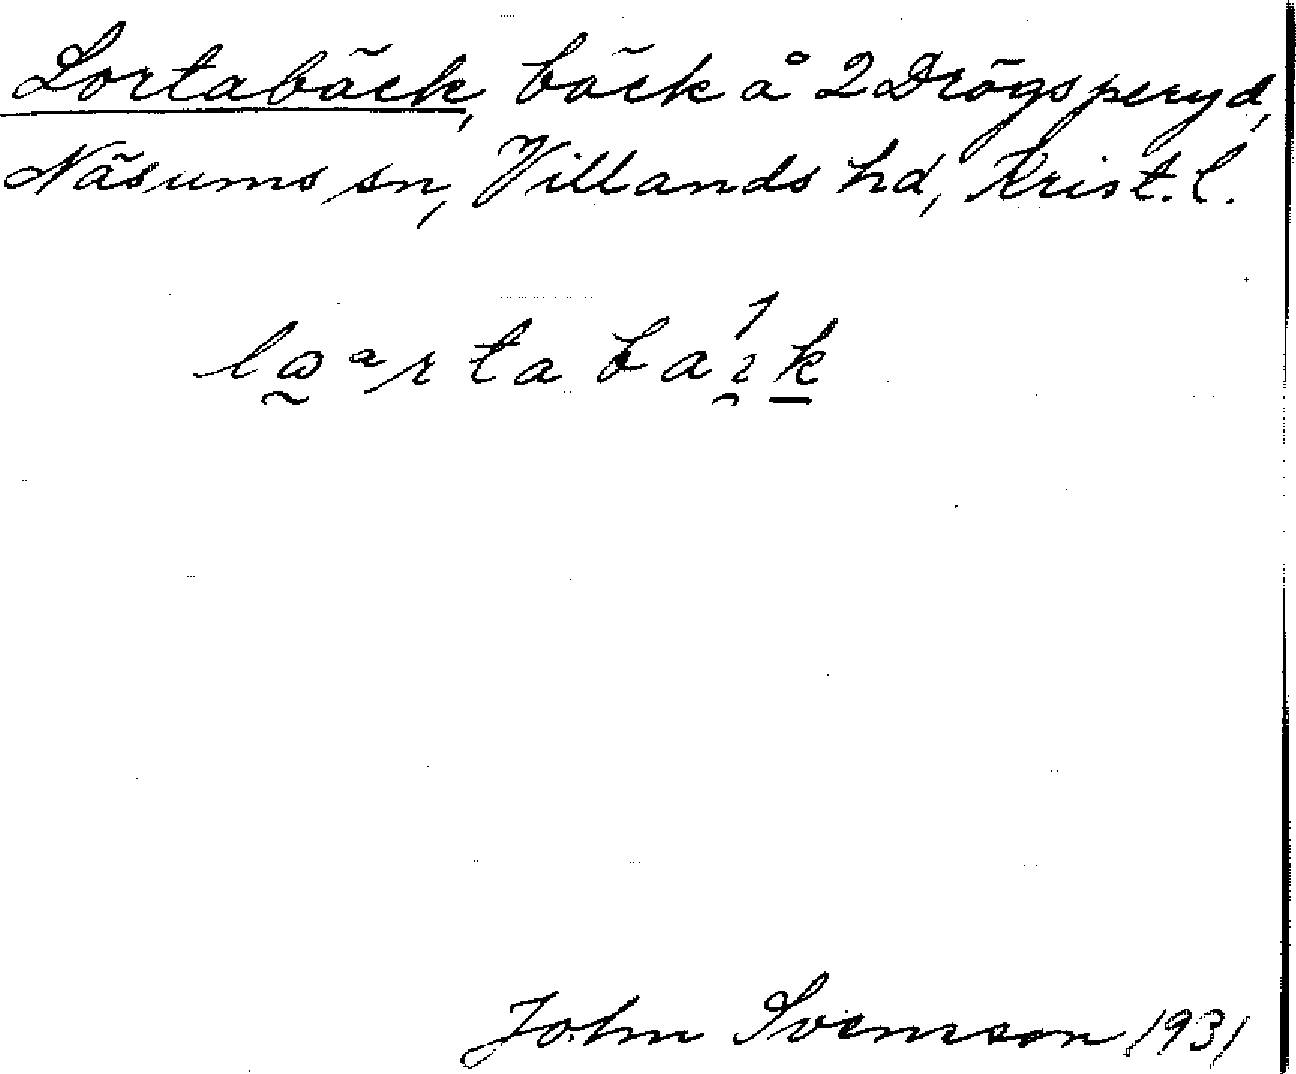 Lortabäck, bäck å 2 Drögsperyd,
Näsums sn, Villands hd, Krist. l.
John Svensson 1931